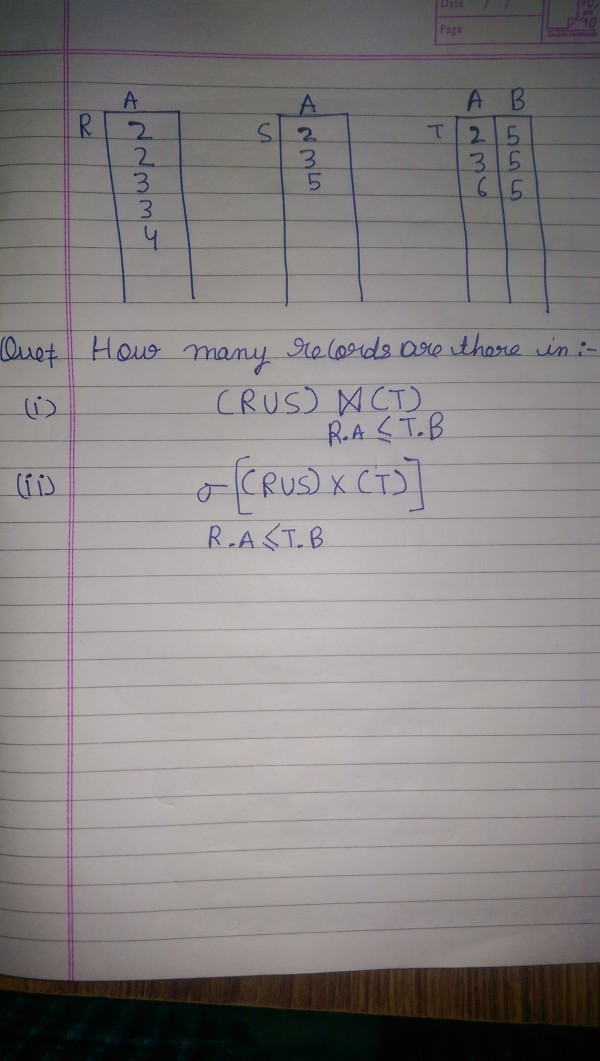 Date / /
Page
A
R
2
2
3
3
4
A
S
2
3
5
A B
T
2 5
3 5
6 5
Ques How many records are there in :-
(i) (R∪S) ⋈ (T)
R.A ≤ T.B
(ii) σ [(R∪S) × (T)]
R.A ≤ T.B